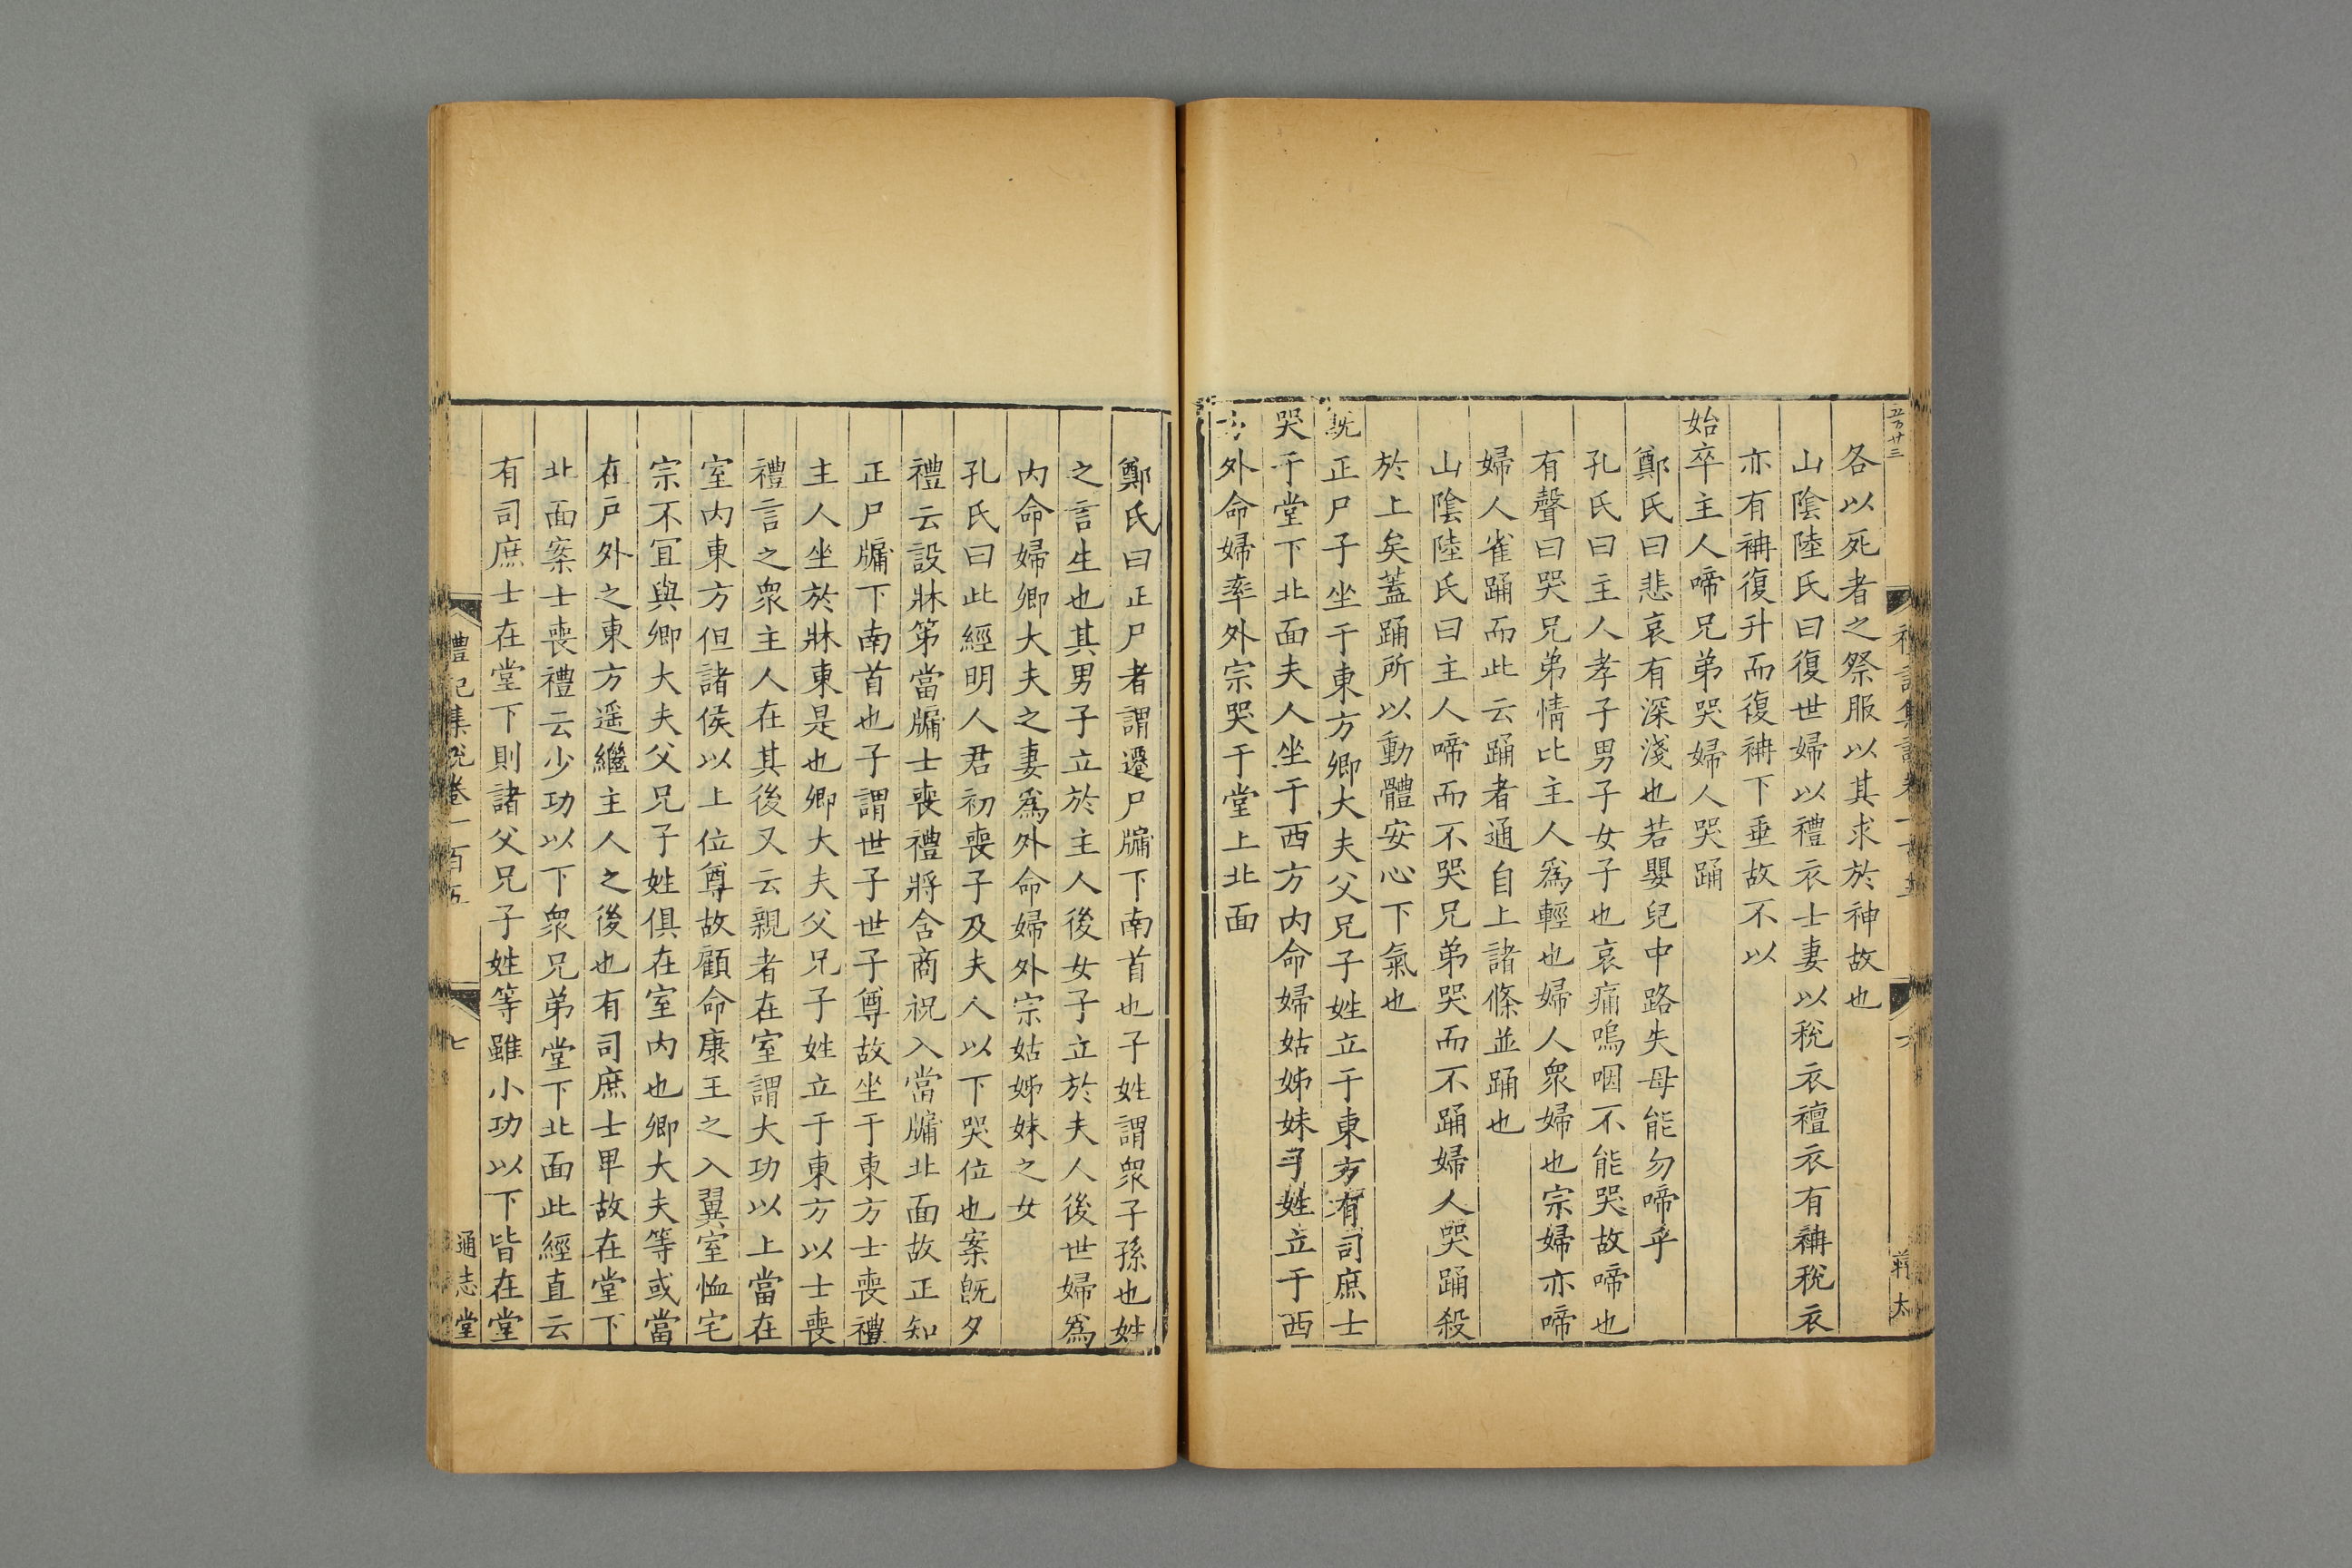 各以死者之祭服以其求於神故也
山陰陸氏曰復世婦以禮衣士妻以稅衣襢衣有袡稅衣
亦有袡復升而復袡下垂故不以
始卒主人啼兄弟哭婦人哭踊
鄭氏曰悲哀有深淺也若嬰兒中路失母能勿啼乎
孔氏曰主人孝子男子女子也哀痛嗚咽不能哭故啼也
有聲曰哭兄弟情比主人爲輕也婦人衆婦也宗婦亦啼
婦人雀踊而此云踊者通自上諸條並踊也
山陰陸氏曰主人啼而不哭兄弟哭而不踊婦人哭踊殺
於上矣蓋踊所以動體安心下氣也
既正尸子坐于東方卿大夫父兄子姓立于東方有司庶士
哭于堂下北面夫人坐于西方内命婦姑姊妹子姓立于西
方外命婦率外宗哭于堂上北面
鄭氏曰正尸者謂遷尸牖下南首也子姓謂衆子孫也姓
之言生也其男子立於主人後女子立於夫人後世婦爲
内命婦卿大夫之妻爲外命婦外宗姑姊妹之女
孔氏曰此經明人君初喪子及夫人以下哭位也案旣夕
禮云設牀第當牖士喪禮將含商祝入當牖北面故正知
正尸牖下南首也子謂世子世子尊故坐于東方士喪禮
主人坐於牀東是也卿大夫父兄子姓立于東方以士喪
禮言之衆主人在其後又云親者在室謂大功以上當在
室内東方但諸侯以上位尊故顧命康王之入翼室恤宅
宗不冝與卿大夫父兄子姓俱在室内也卿大夫等或當
在戸外之東方遥繼主人之後也有司庶士卑故在堂下
北面案士喪禮云少功以下衆兄弟堂下北面此經直云
有司庶士在堂下則諸父兄子姓等雖小功以下皆在堂
禮記集說卷一百五
七
通志堂